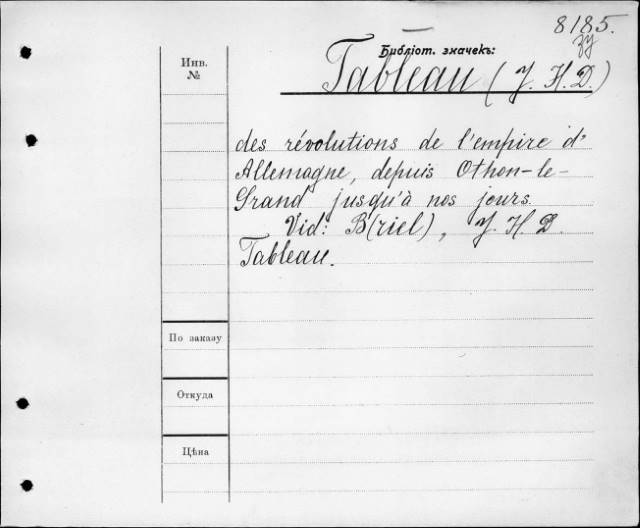 8185.
Библіот. значекъ:
Tableau (J. H. D.)
Инв.
№
des révolutions de l'empire d'
Allemagne, depuis Othon-le-
Grand jusqu'à nos jours.
Vid: B(riel), J. H. D.
Tableau.
По заказу
Откуда
Цѣна